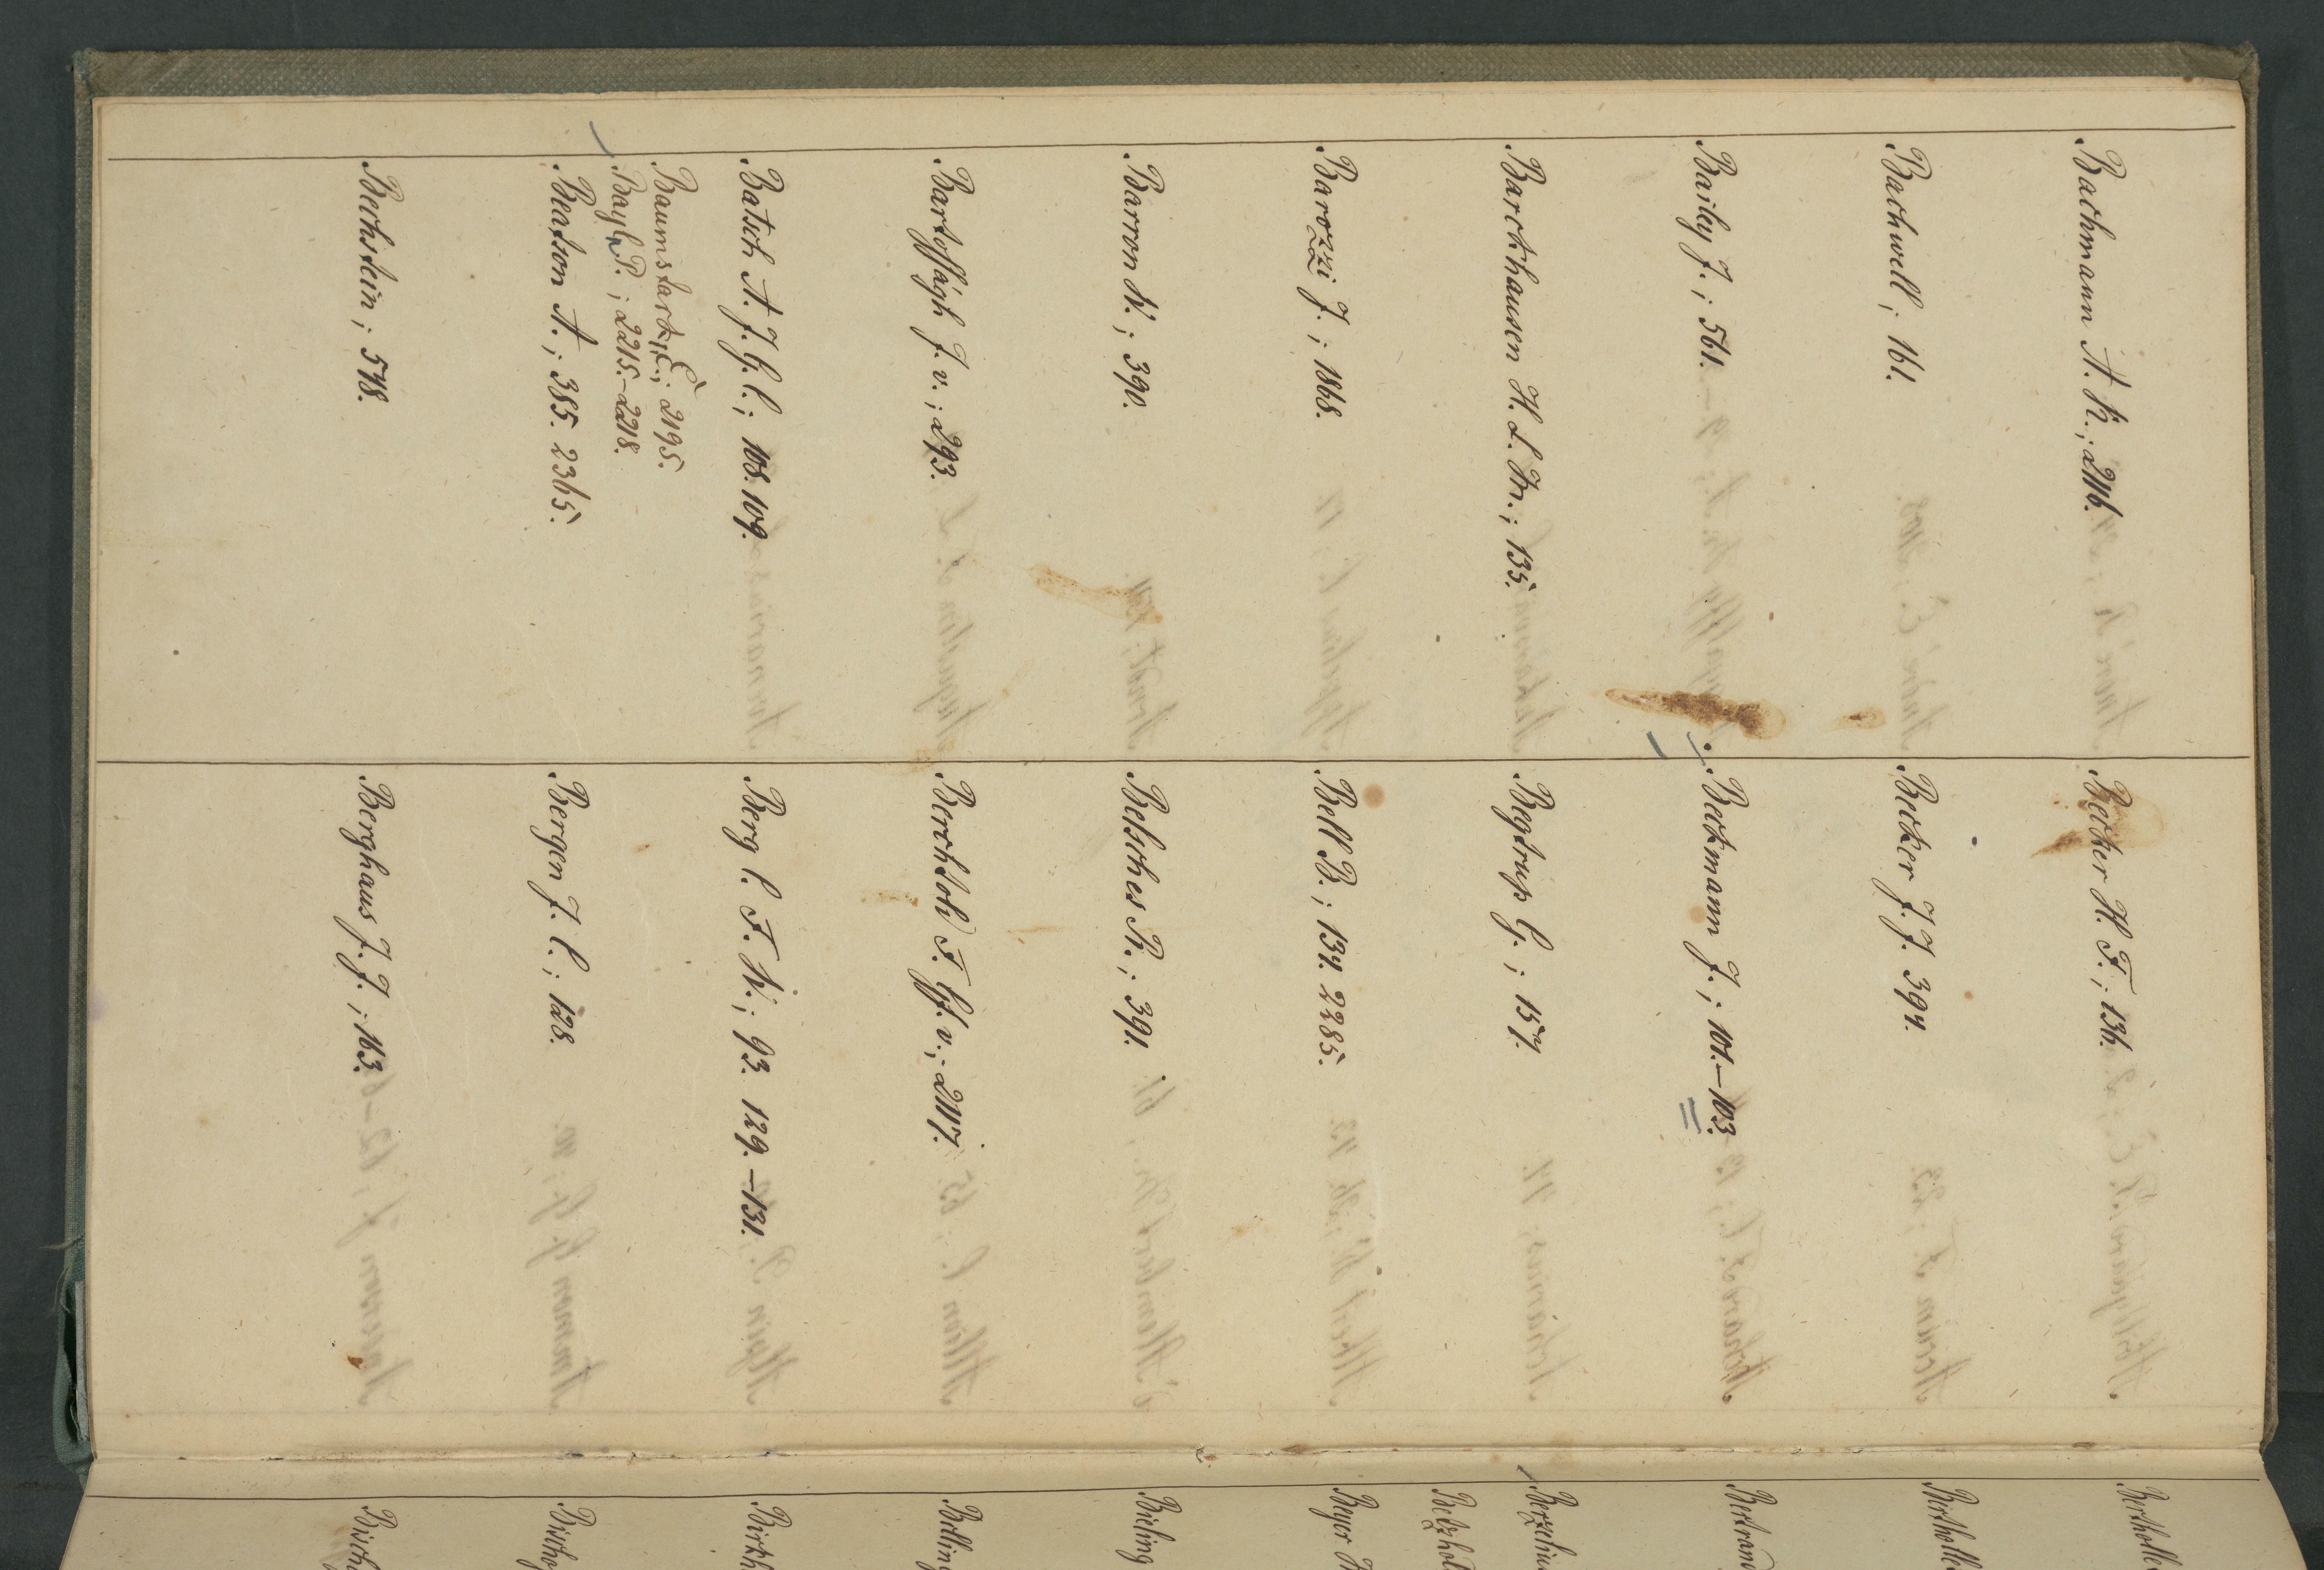 Bachmann A. K.; 2116.
Backwell; 161.
Baily J.; 561.
Barckhausen H. L. W.; 135.
Barozzi J.; 1868.
Barron W.; 390.
Bartosságh J. v.; 293.
Batsch A. J. G. C.; 108. 109.
Baumstark, E.; 2195.
Bayl P.; 2215.-2218.
Beatson A.; 385. 2365.
Bechstein; 578.
Becker H. F.; 136.
Becker J. J. 394.
Beckmann J.; 101.-103.
Begtrup G.; 157.
Bell B.; 134. 2285.
Belsches R.; 391.
Berchtold F. Gf. v.; 2117.
Berg C. F. W.; 93. 129.-131.
Bergen J. C.; 128.
Berghaus J. J.; 163.
Bertholle
Bertholle
Bertrand
Berzeliu
Betzhol
Beyer
Bieling
Billing
Birkh
Bischo
Bisch